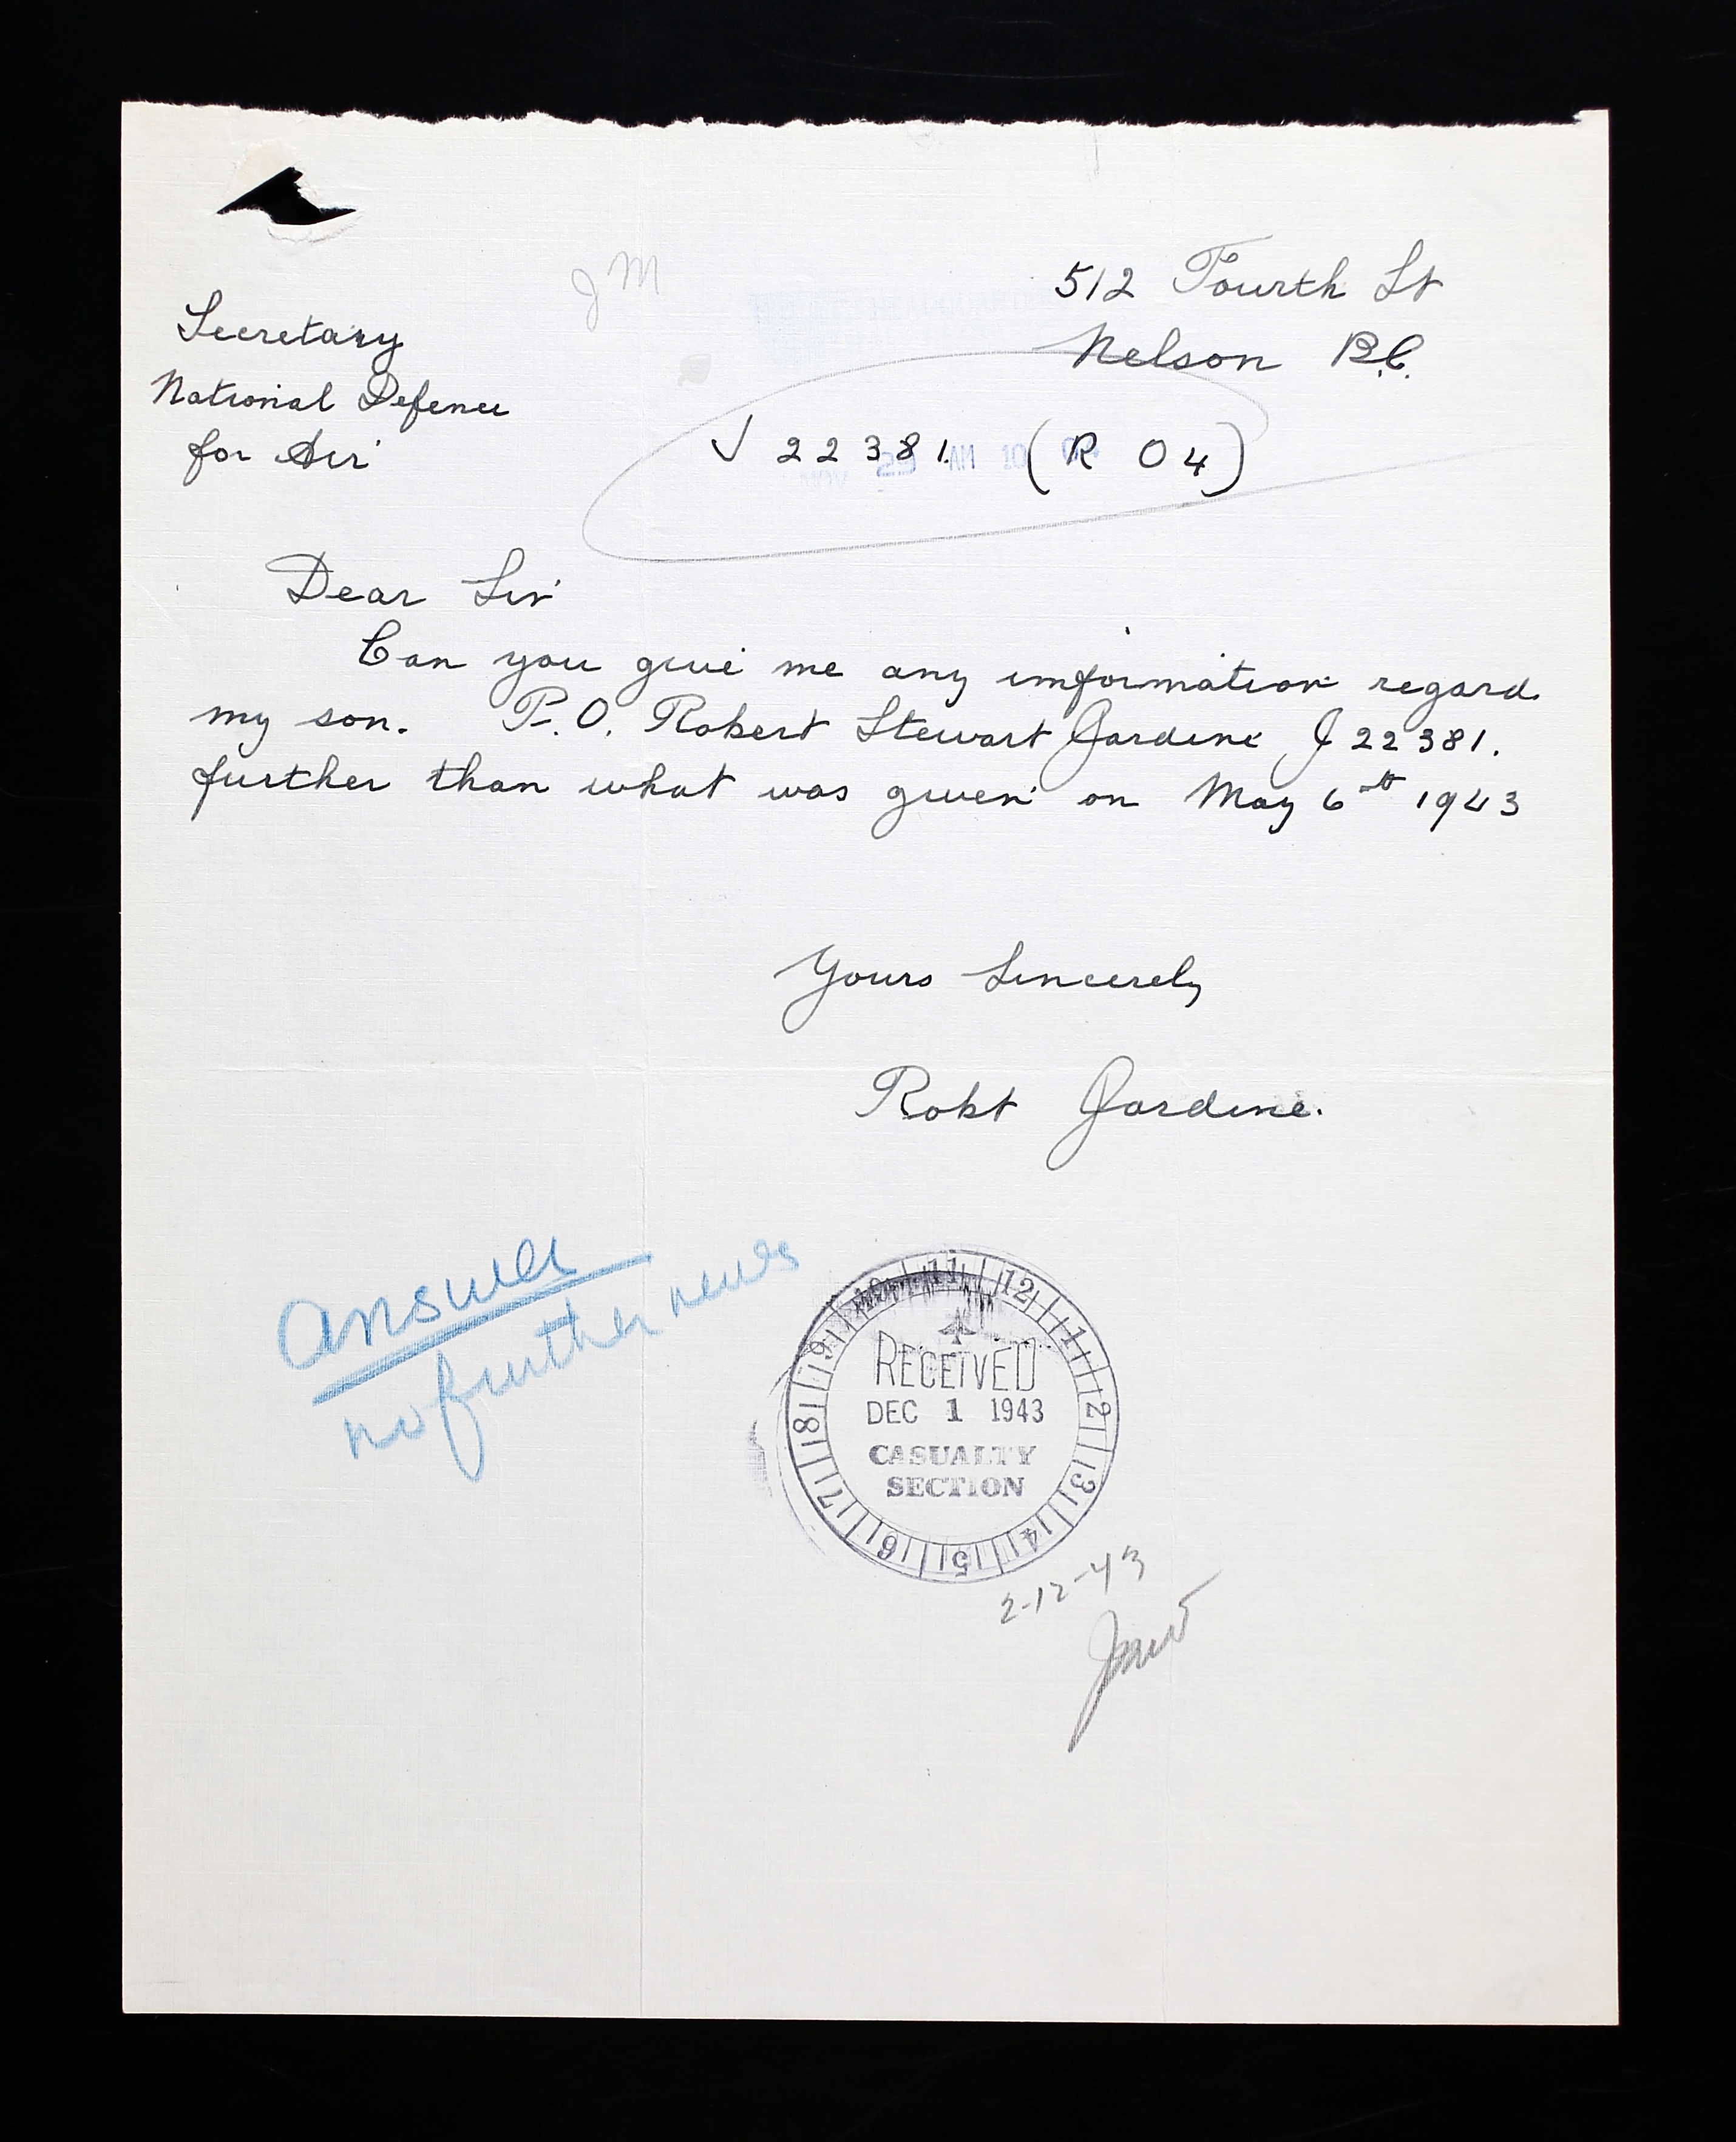 J M
512 Fourth St
Nelson B.C.
Secretary
National Defence
for Air
J 22381. (R O4)
Dear Sir
Can you give me any imformation regard
my son. P.O. Robert Stewart Jardine J 22381.
further than what was given on May 6th 1943
Yours Sincerely
Robt Jardine.
answer
no further news
10 11 12 1 2 3 4 5 6 7 8 9
RECEIVED
DEC 1 1943
CASUALTY
SECTION
2-12-43